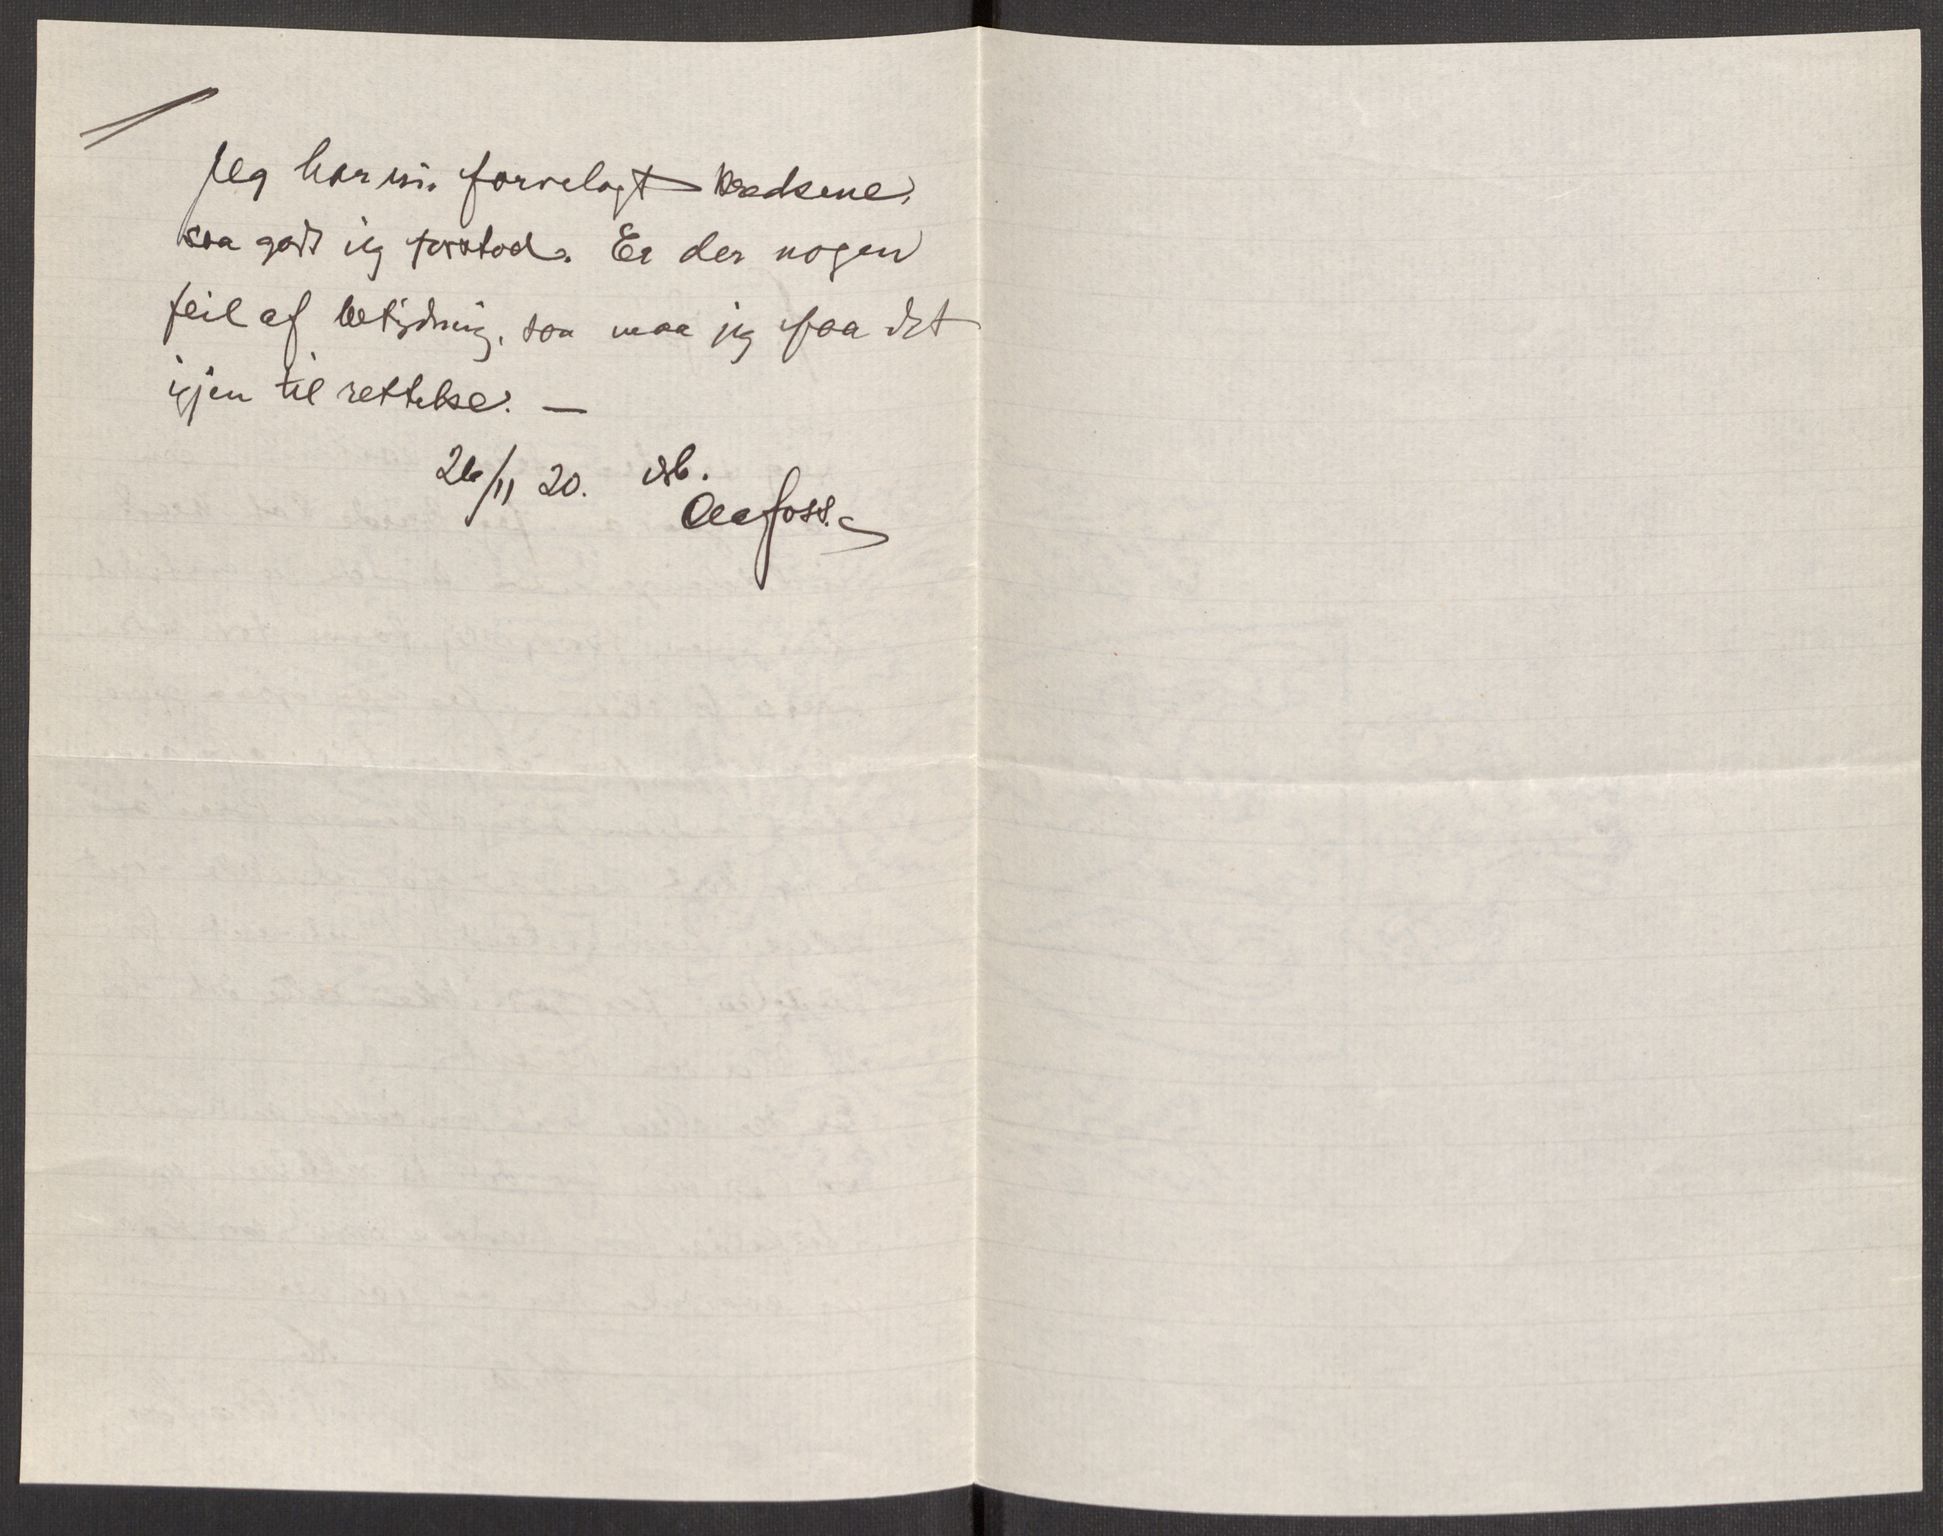 Jeg har nu forvelagt kredsene,
saa godt jeg forstod. Er der nogen
feil af betydning, saa maa jeg faa det
igjen til rettelse. —
26/11 20. rb.
Foss.